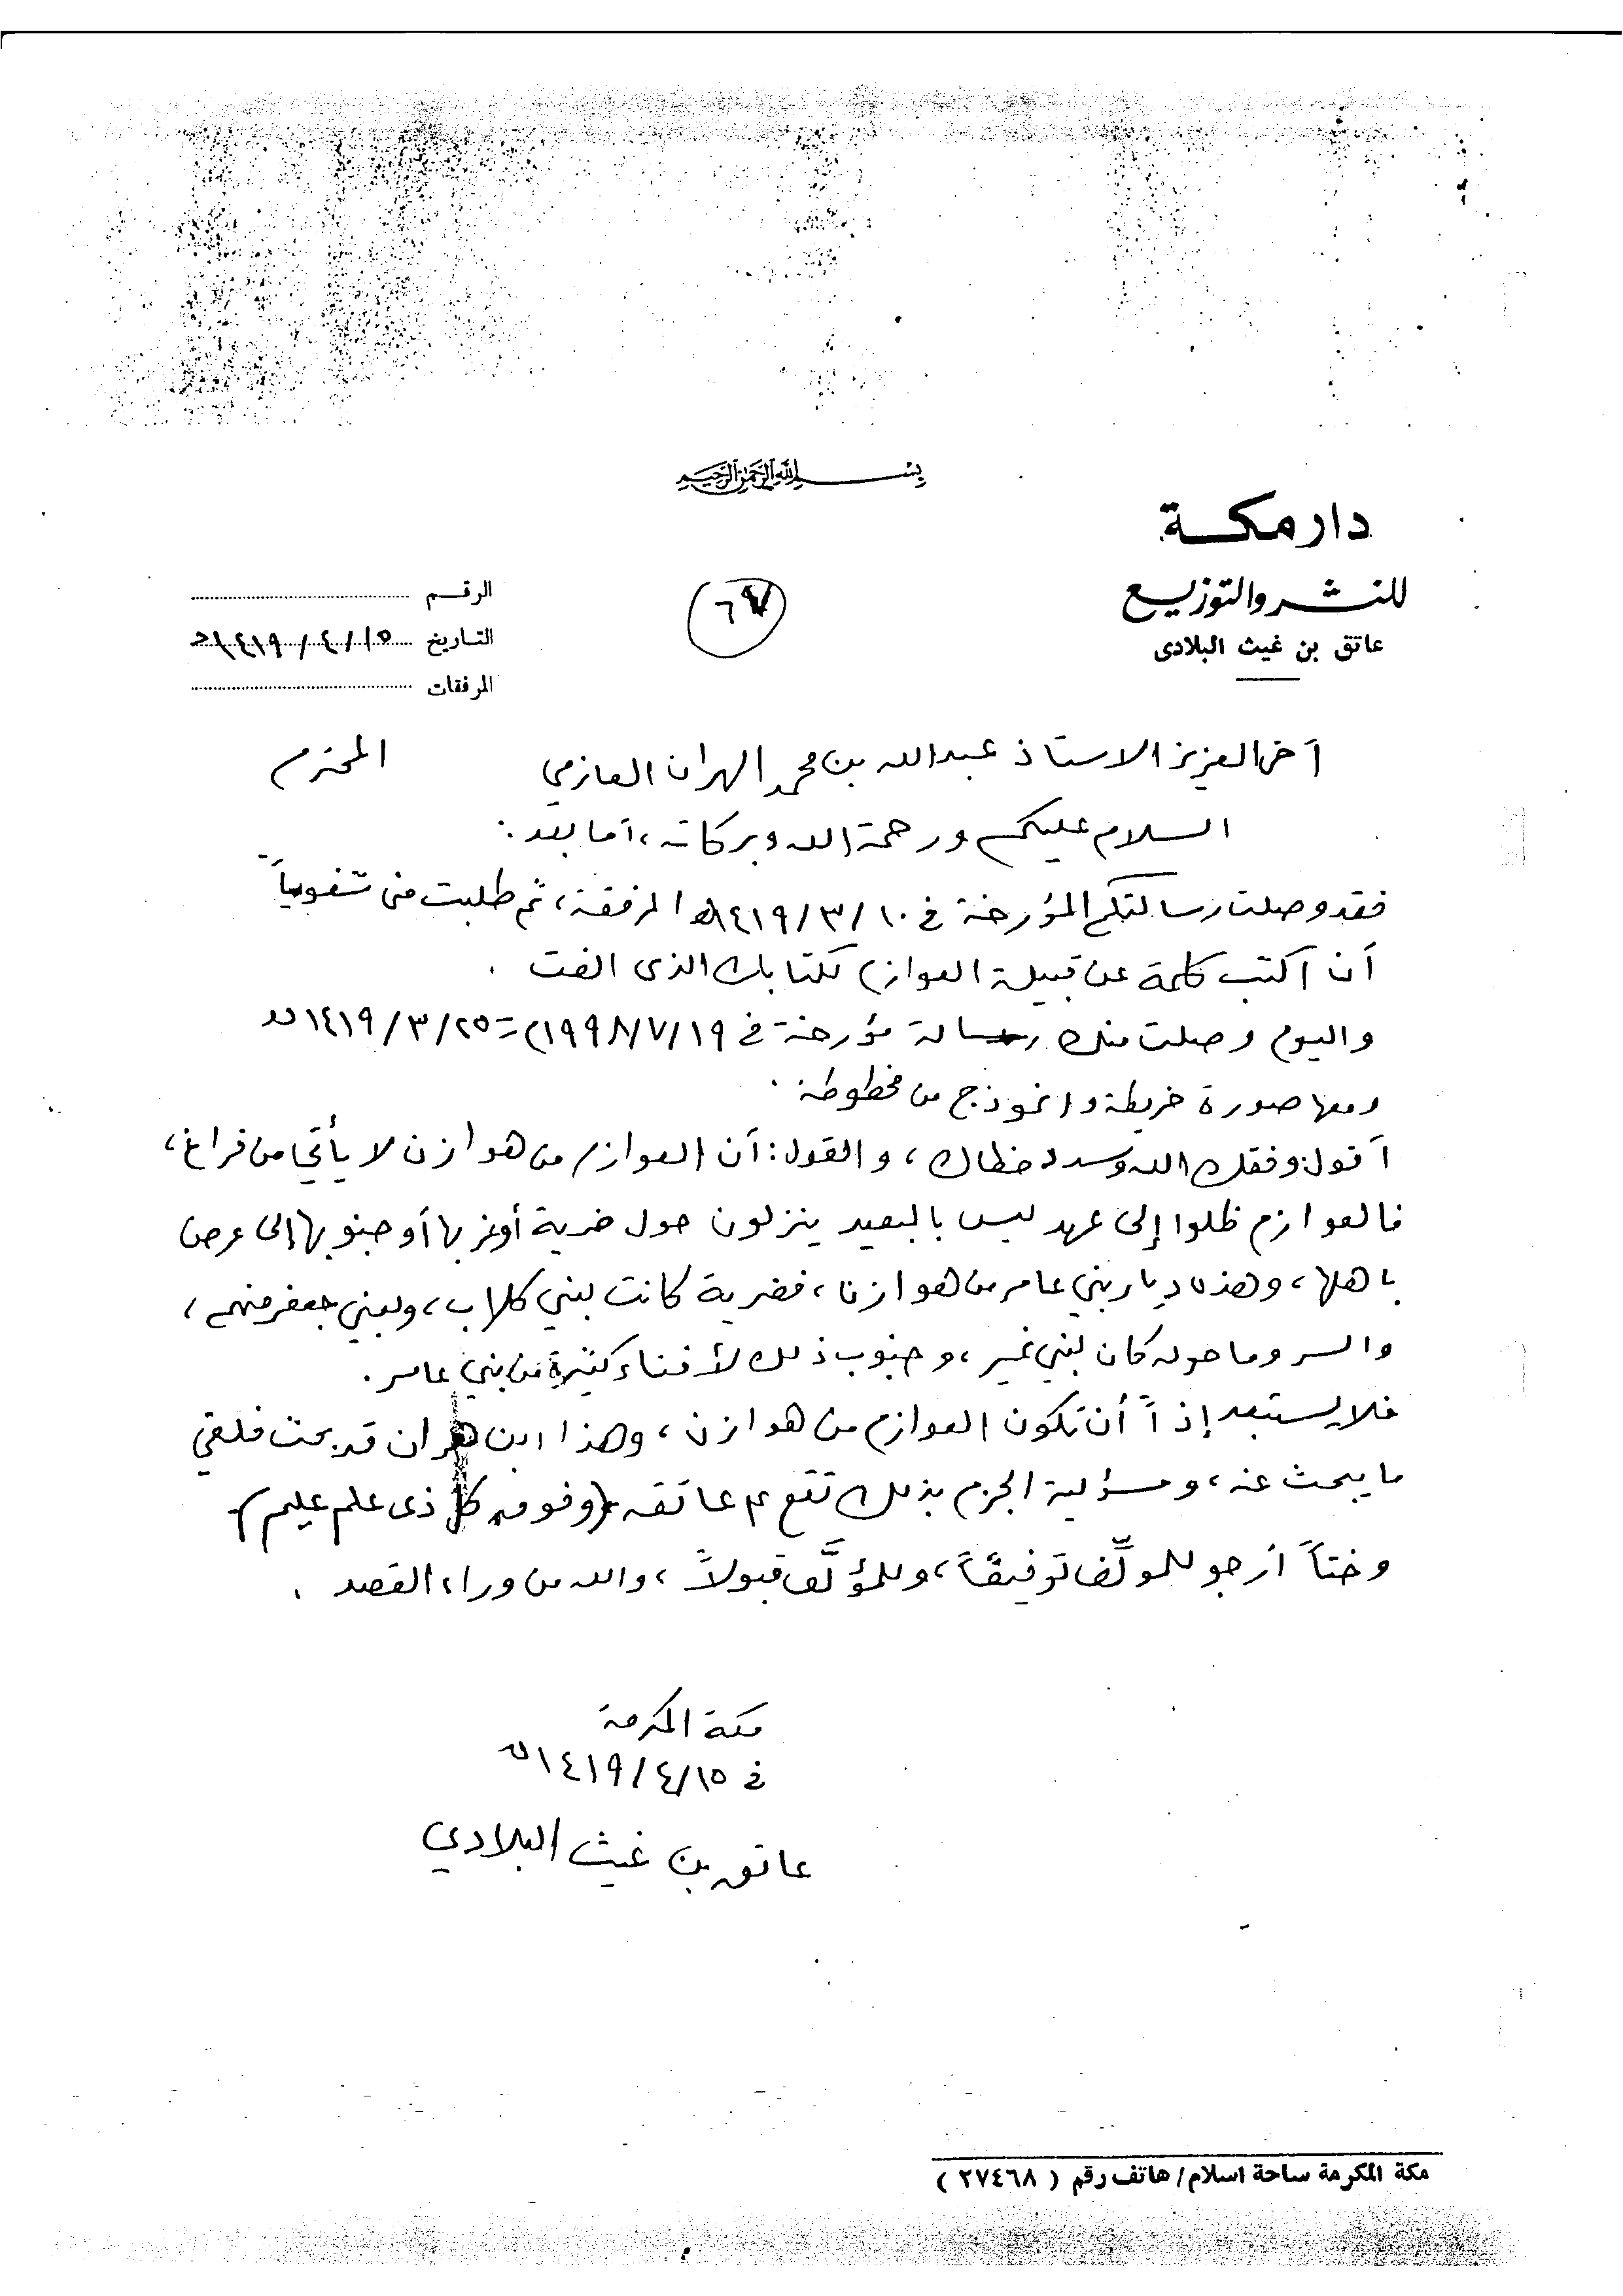 بسم الله الرحمن الرحيم
دار مكة
للنشر والتوزيع
عاتق بن غيث البلادى
الرقم
التاريخ ١٥ / ٤ / ١٤١٩هـ
المرفقات
أخي العزيز الاستاذ عبدالله بن محمد الهران العازمي المحترم
السلام عليكم ورحمة الله وبركاته، أما بعد:
فقد وصلت رسالتكم المؤرخة في ١٠/٣/١٤١٩هـ المرفقة، ثم طلبت مني شفوياً
أن اكتب كلمة عن قبيلة العوازم لكتابك الذى الفت .
واليوم وصلت منك رسالة مؤرخة في ١٩/٧/١٩٩٨م = ٢٥/٣/١٤١٩هـ
ومعها صورة خريطة وانموذج من مخطوطة.
أقول: وفقك الله وسدد خطاك، والقول: أن العوازم من هوازن لا يأتي من فراغ،
فالعوازم ظلوا إلى عهد ليس بالبعيد ينزلون حول ضرية أو غربها أو جنوبها إلى عرض
باهلها، وهذه ديار بني عامر من هوازن، فضرية كانت لبني كلاب، ولبني جعفر منهم،
والسر وما حوله كان لبني نمير، وجنوب ذلك لأفناء كثيرة من بني عامر.
فلا يستبعد إذاً أن تكون العوازم من هوازن، وهذا ابن هران قد بحث فلقي
ما يبحث عنه، ومسؤلية الجزم بذلك تقع على عاتقه (وفوق كل ذى علم عليم).
وختاً أرجو للمولِّف توفيقاً، وللمؤلَّف قبولاً، والله من وراء القصد .
مكة المكرمة
في ١٥/٤/١٤١٩هـ
عاتق بن غيث البلادي
مكة المكرمة ساحة اسلام/ هاتف رقم ( ٢٧٤٦٨ )